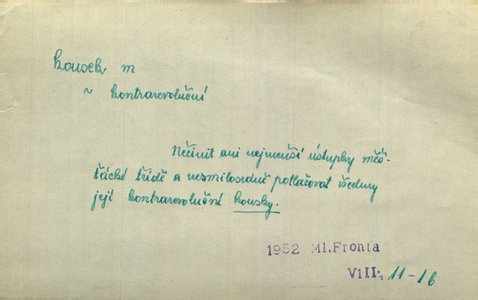 kousek m
~ kontrarevoluční
Nečinit ani nejmenší ústupky měš-
ťácké třídě a nesmilosrdně potlačovat všechny
její kontrarevoluční kousky.
1952 Ml.Fronta
VIII. 11-16